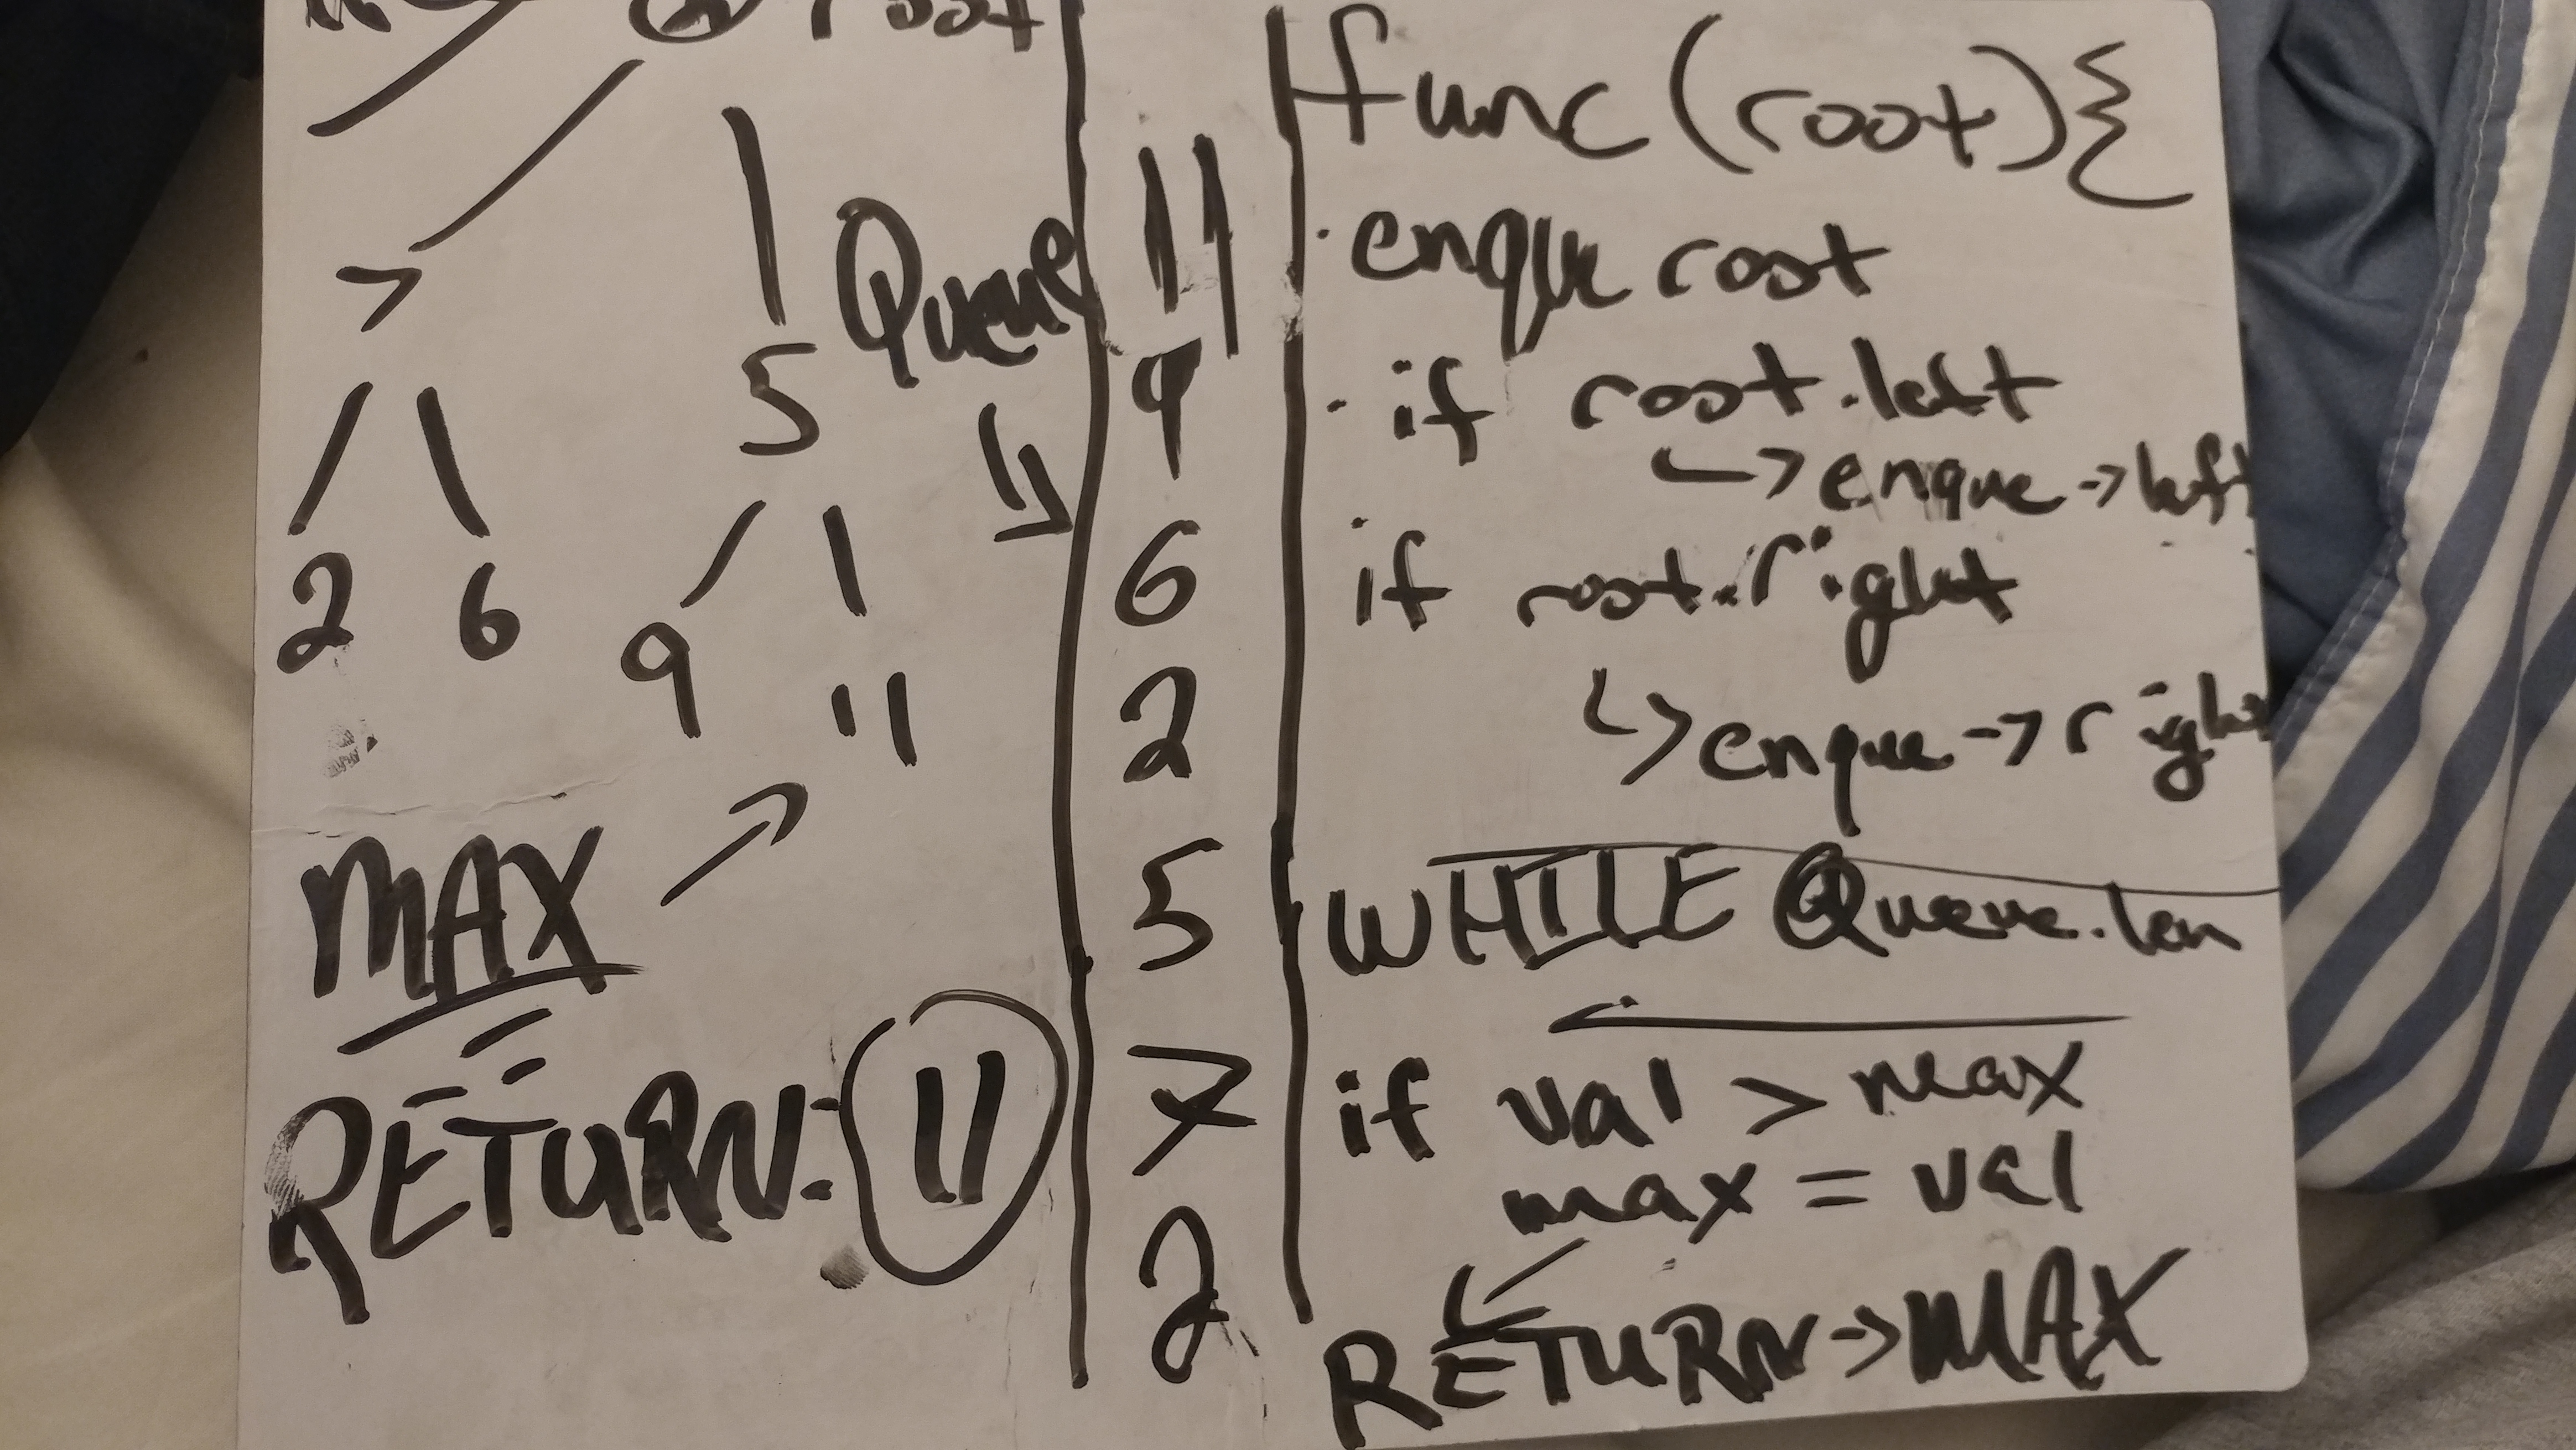 root
7
5
2 6
9 11
MAX
RETURN: 11
Queue
11
9
6
2
5
7
2
func (root) {
enque root
if root.left
↳ enque → left
if root.right
↳ enque → right
WHILE Queue.len
if val > max
max = val
RETURN → MAX